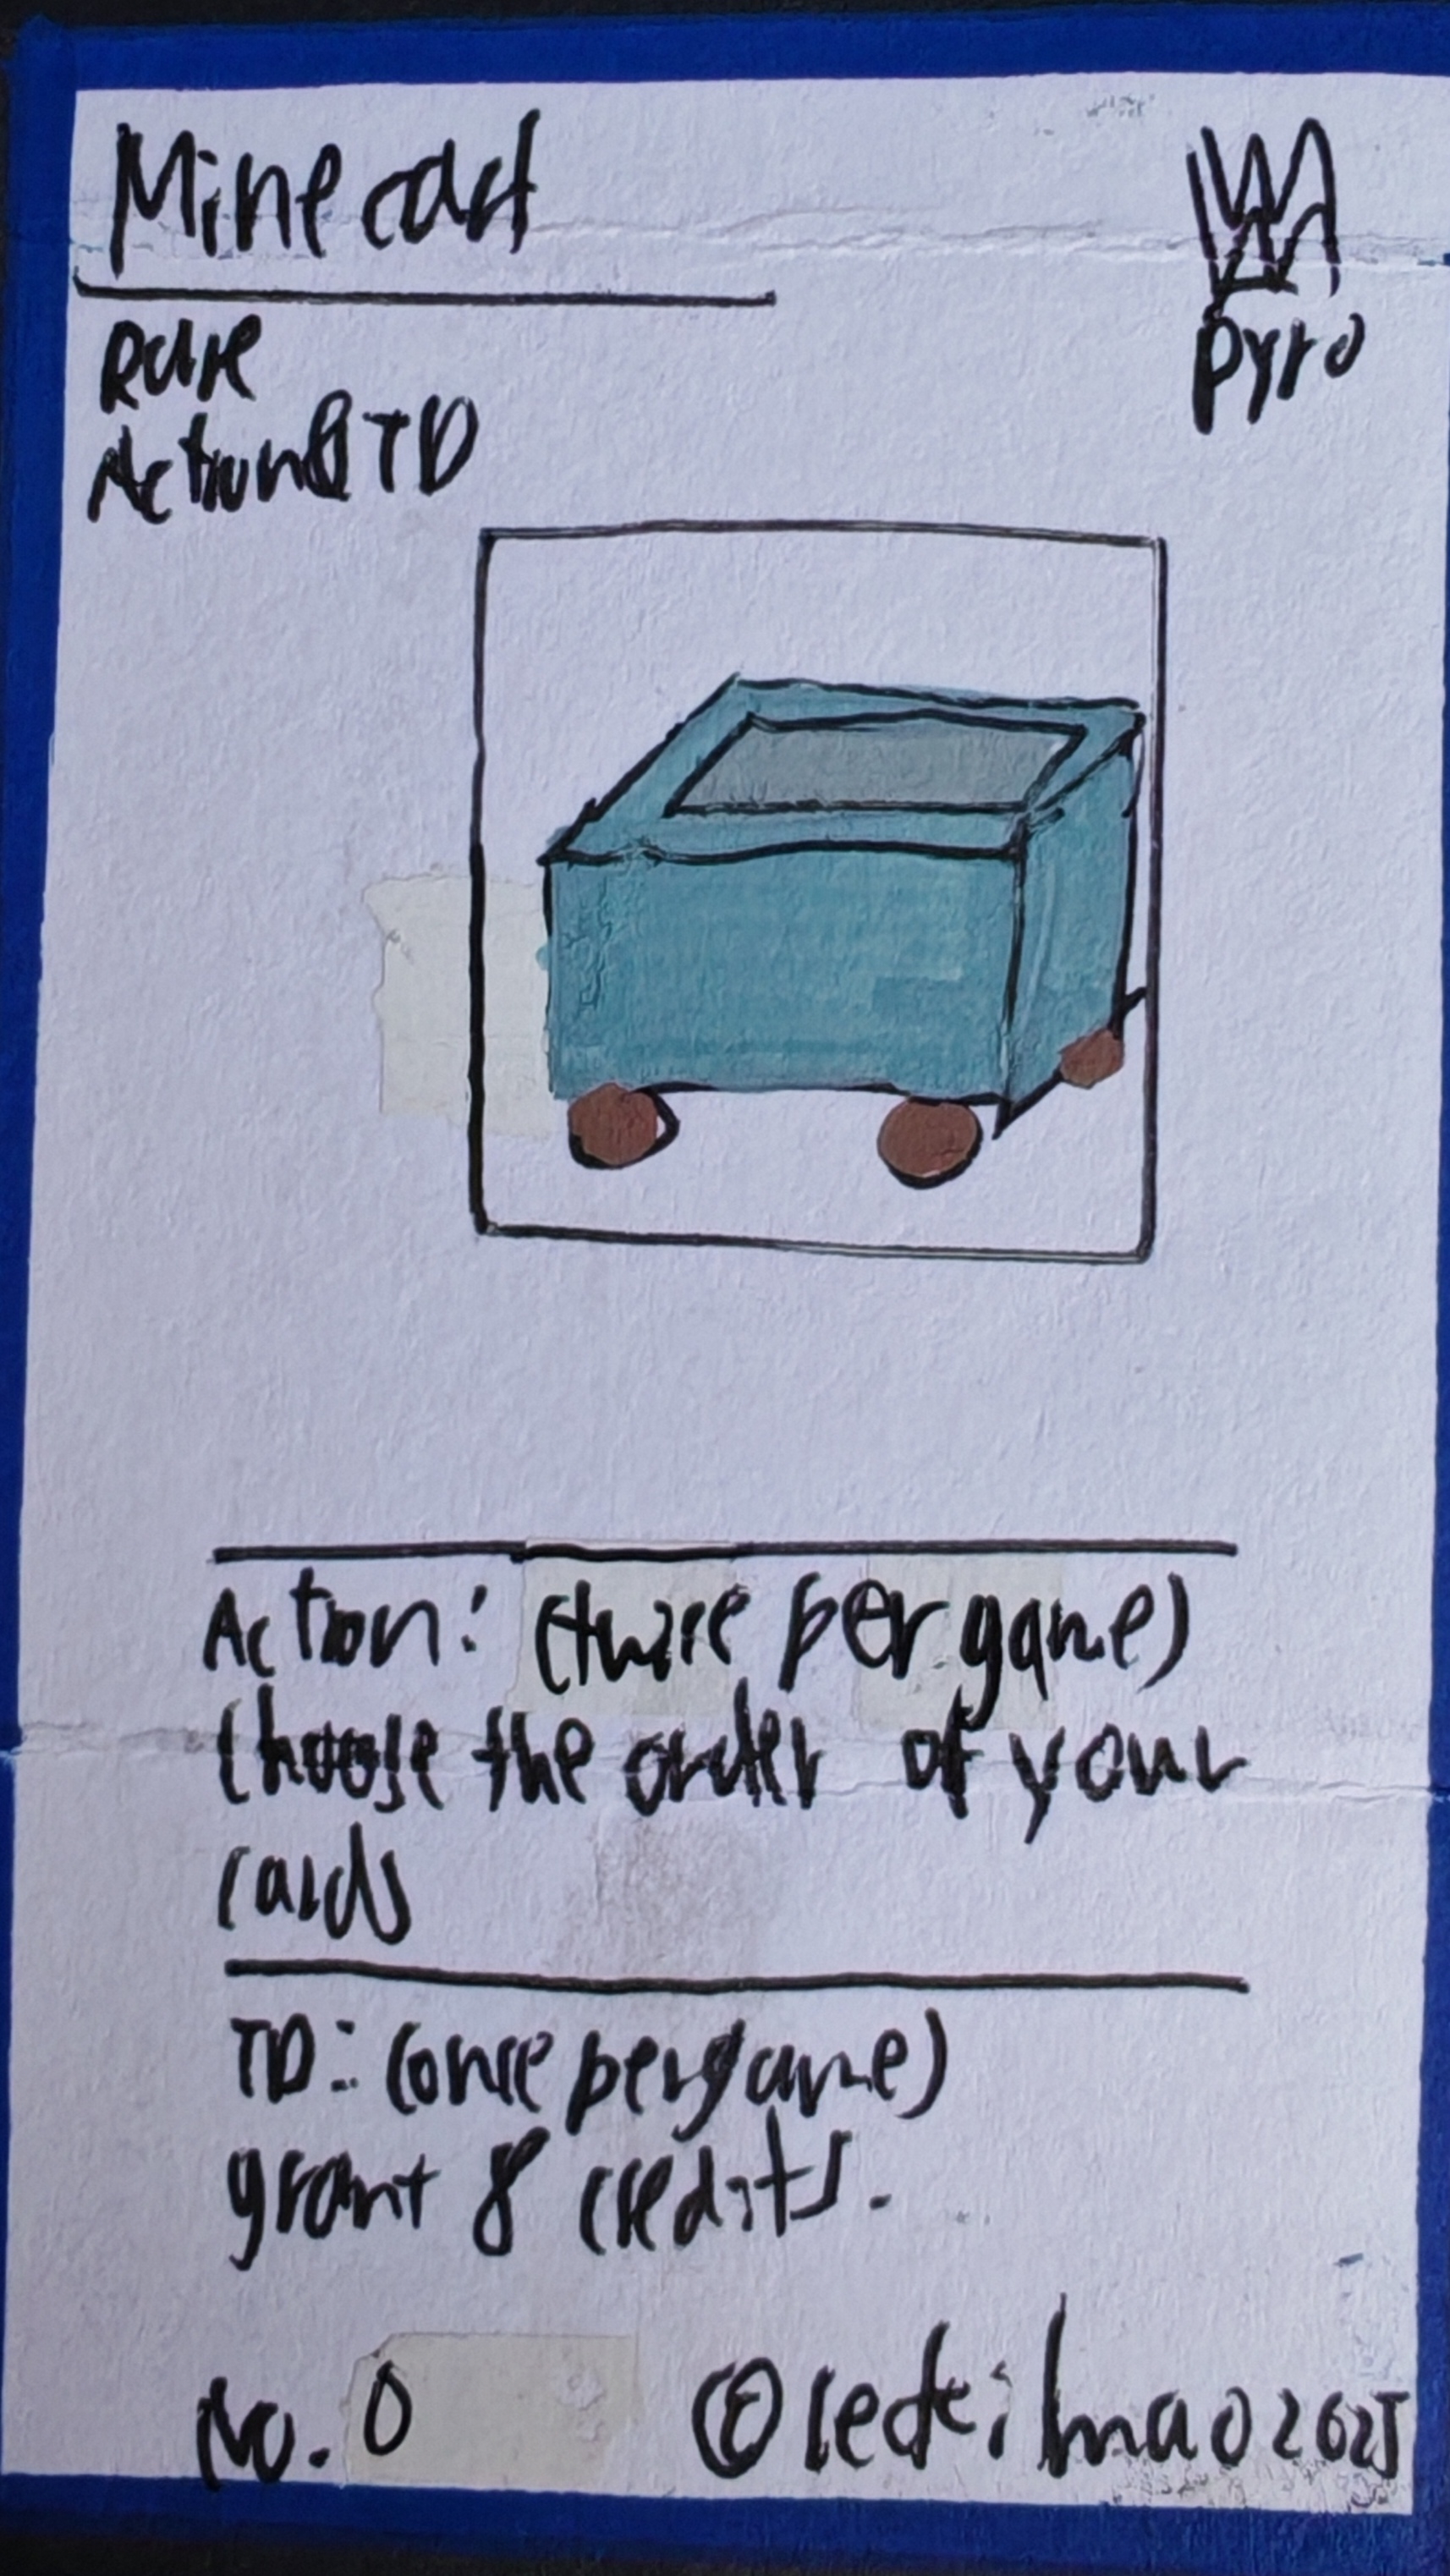 Minecart
Pyro
Rare
Action&TD
Action: (twice per game)
choose the order of your
cards
TD: (once per game)
grant 8 credits.
No. 0
2025